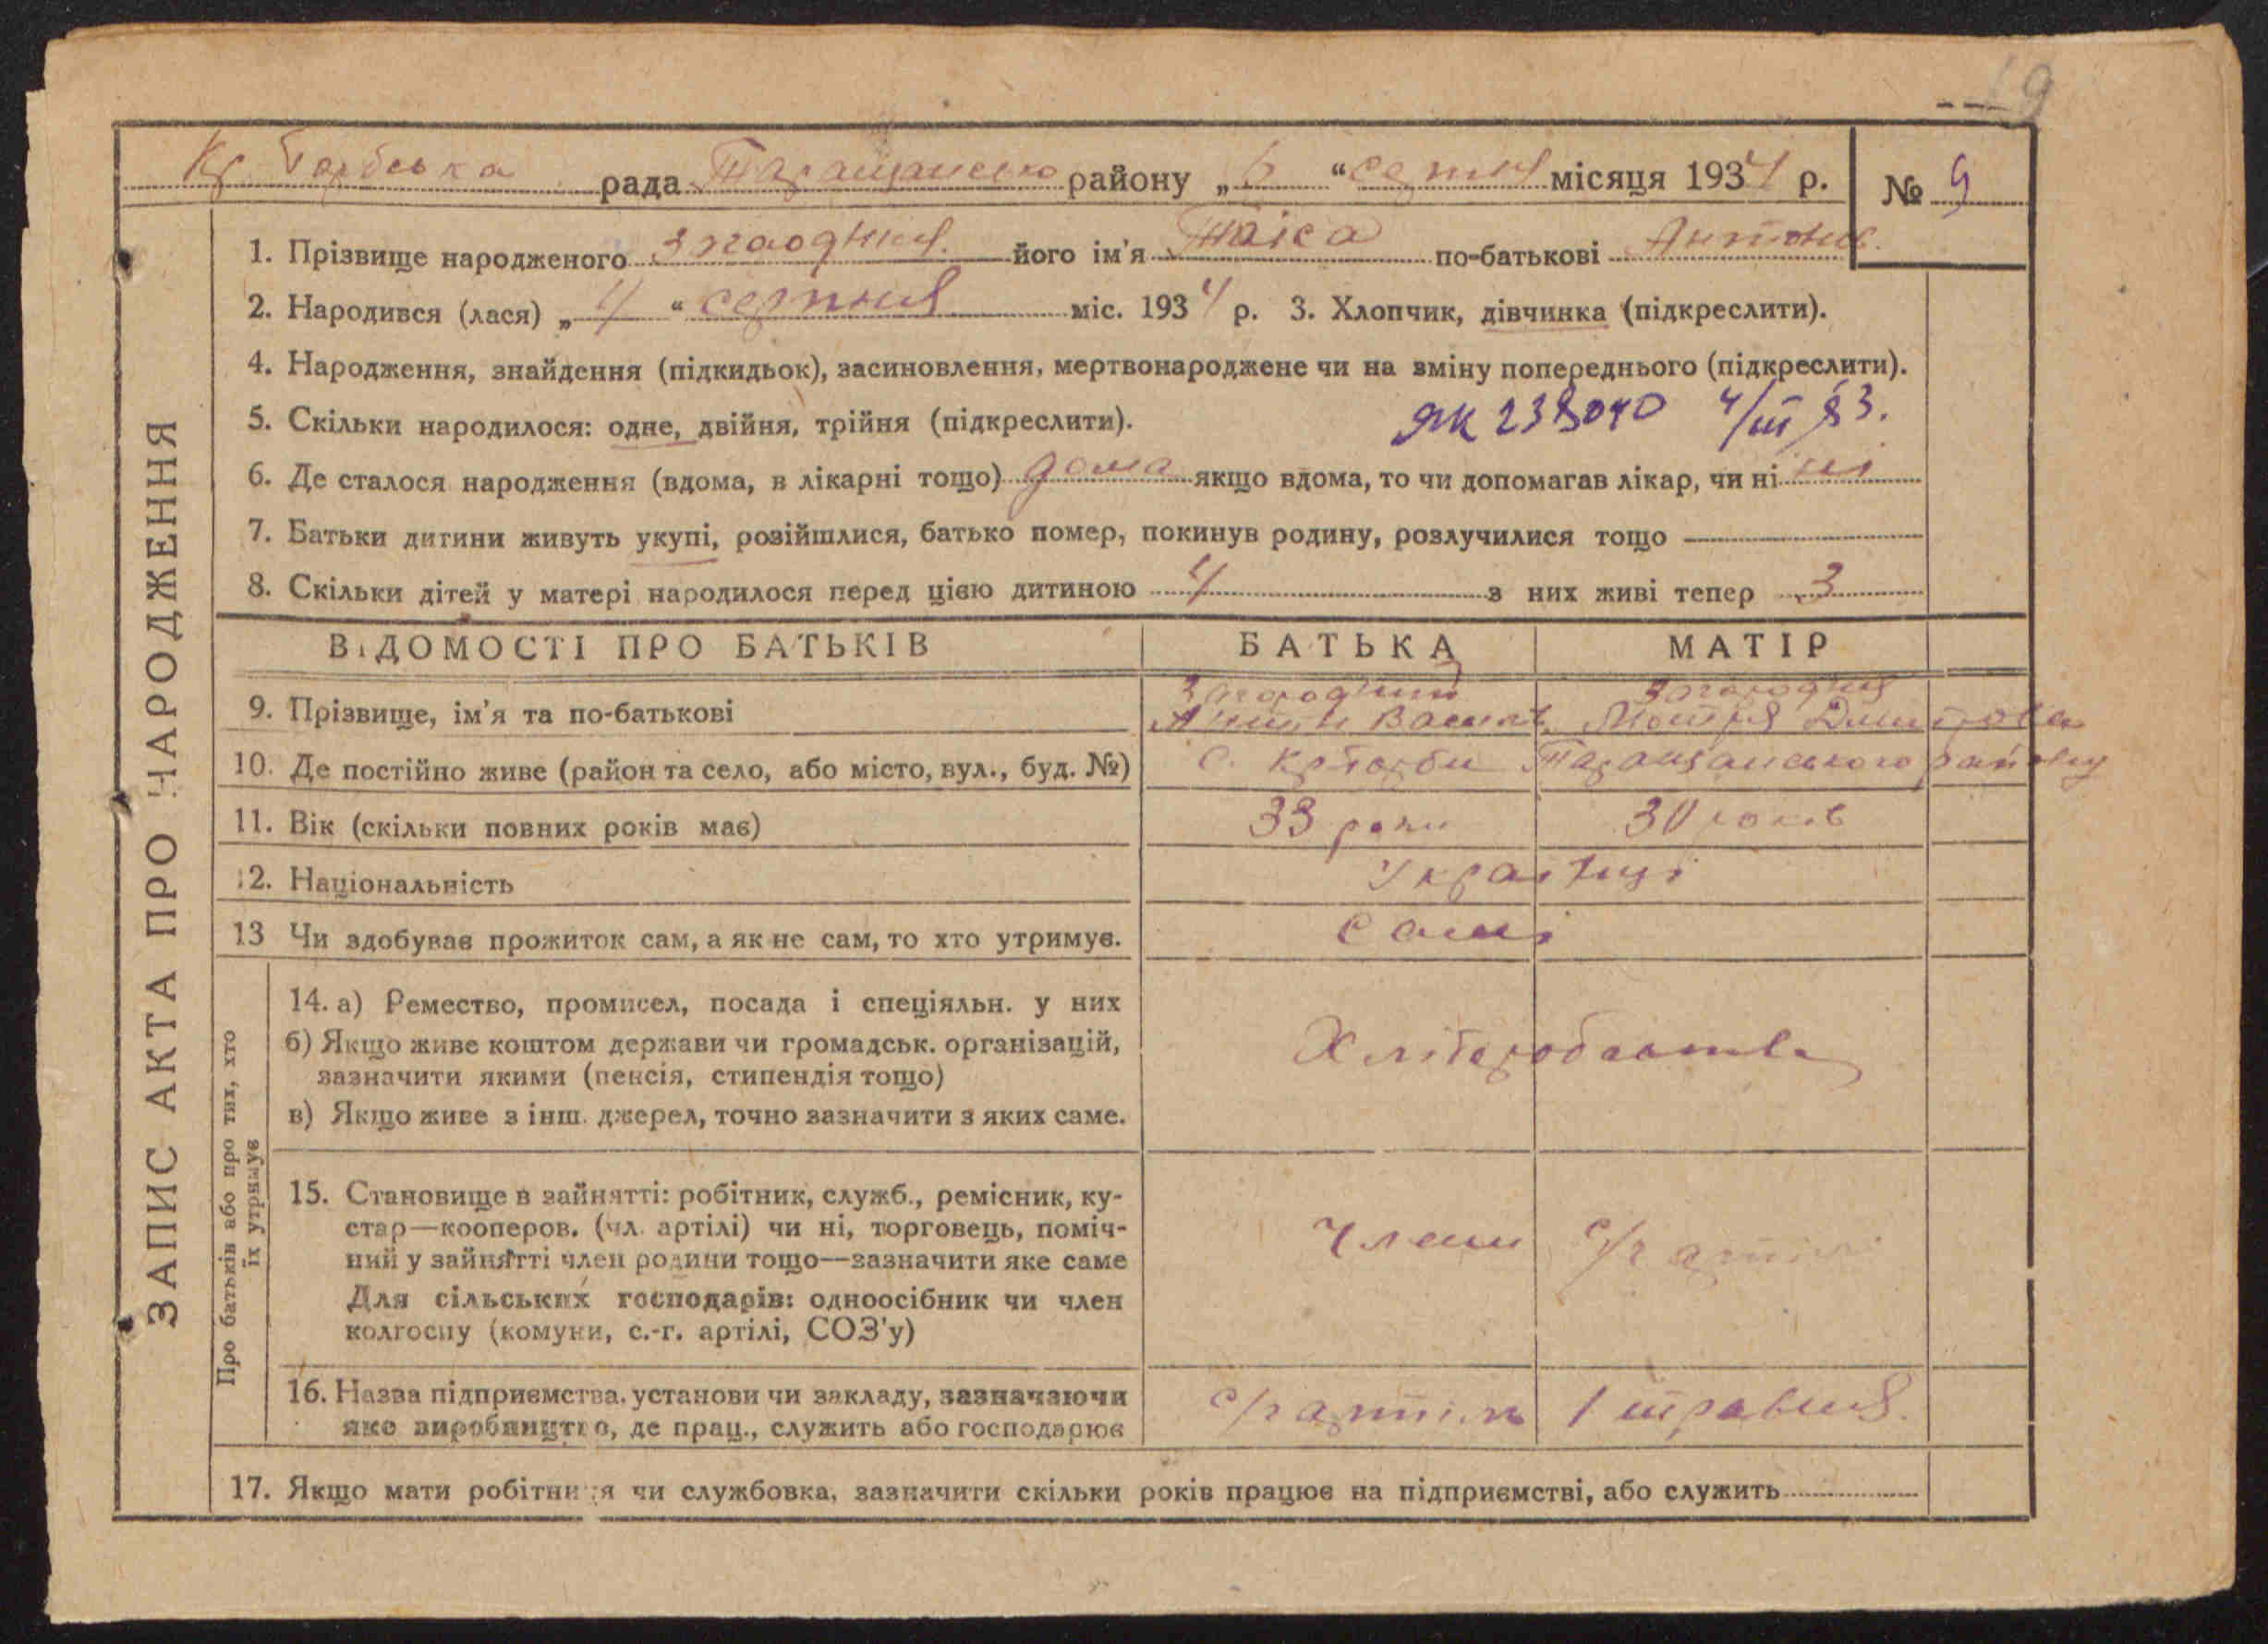 19
Кр. Горбська рада Таращансько району „6“ серпня місяця 1934 р. № 9
ЗАПИС АКТА ПРО НАРОДЖЕННЯ
1. Прізвище народженого його ім'я Таіса по-батькові Антонів.
2. Народився (лася) „4“ серпня міс. 1934 р. 3. Хлопчик, дівчинка (підкреслити).
4. Народження, знайдення (підкидьок), засиновлення, мертвонароджене чи на зміну попереднього (підкреслити).
5. Скільки народилося: одне, двійня, трійня (підкреслити). 4/III 83.
6. Де сталося народження (вдома, в лікарні тощо) дома якщо вдома, то чи допомагав лікар, чи ні ні
7. Батьки дитини живуть укупі, розійшлися, батько помер, покинув родину, розлучилися тощо
8. Скільки дітей у матері народилося перед цією дитиною 4 з них живі тепер 3
ВІДОМОСТІ ПРО БАТЬКІВ БАТЬКА МАТІР
9. Прізвище, ім'я та по-батькові Загородний Загородня
Антін Васильв. Мотря Дмитрова
10. Де постійно живе (район та село, або місто, вул., буд. №) С. Кр горби Таращанського району
11. Вік (скільки повних років має) 33 роки 30 років
12. Національність Українці
13 Чи здобуває прожиток сам, а як не сам, то хто утримує. самі
Про батьків або про тих, хто
їх утримує
14. а) Ремество, промисел, посада і спеціяльн. у них
б) Якщо живе коштом держави чи громадськ. організацій,
зазначити якими (пенсія, стипендія тощо)
в) Якщо живе з інш. джерел, точно зазначити з яких саме.
Хліборобства
15. Становище в зайнятті: робітник, служб., ремісник, ку-
стар—кооперов. (чл. артілі) чи ні, торговець, поміч-
ний у зайнятті член родини тощо—зазначити яке саме
Для сільських господарів: одноосібник чи член
колгоспу (комуни, с.-г. артілі, СОЗ'у)
Члени с/г артілі
16. Назва підприємства, установи чи закладу, зазначаючи
яке виробництво, де прац., служить або господарює
с/г артіль 1 травня.
17. Якщо мати робітниця чи службовка, зазначити скільки років працює на підприємстві, або служить